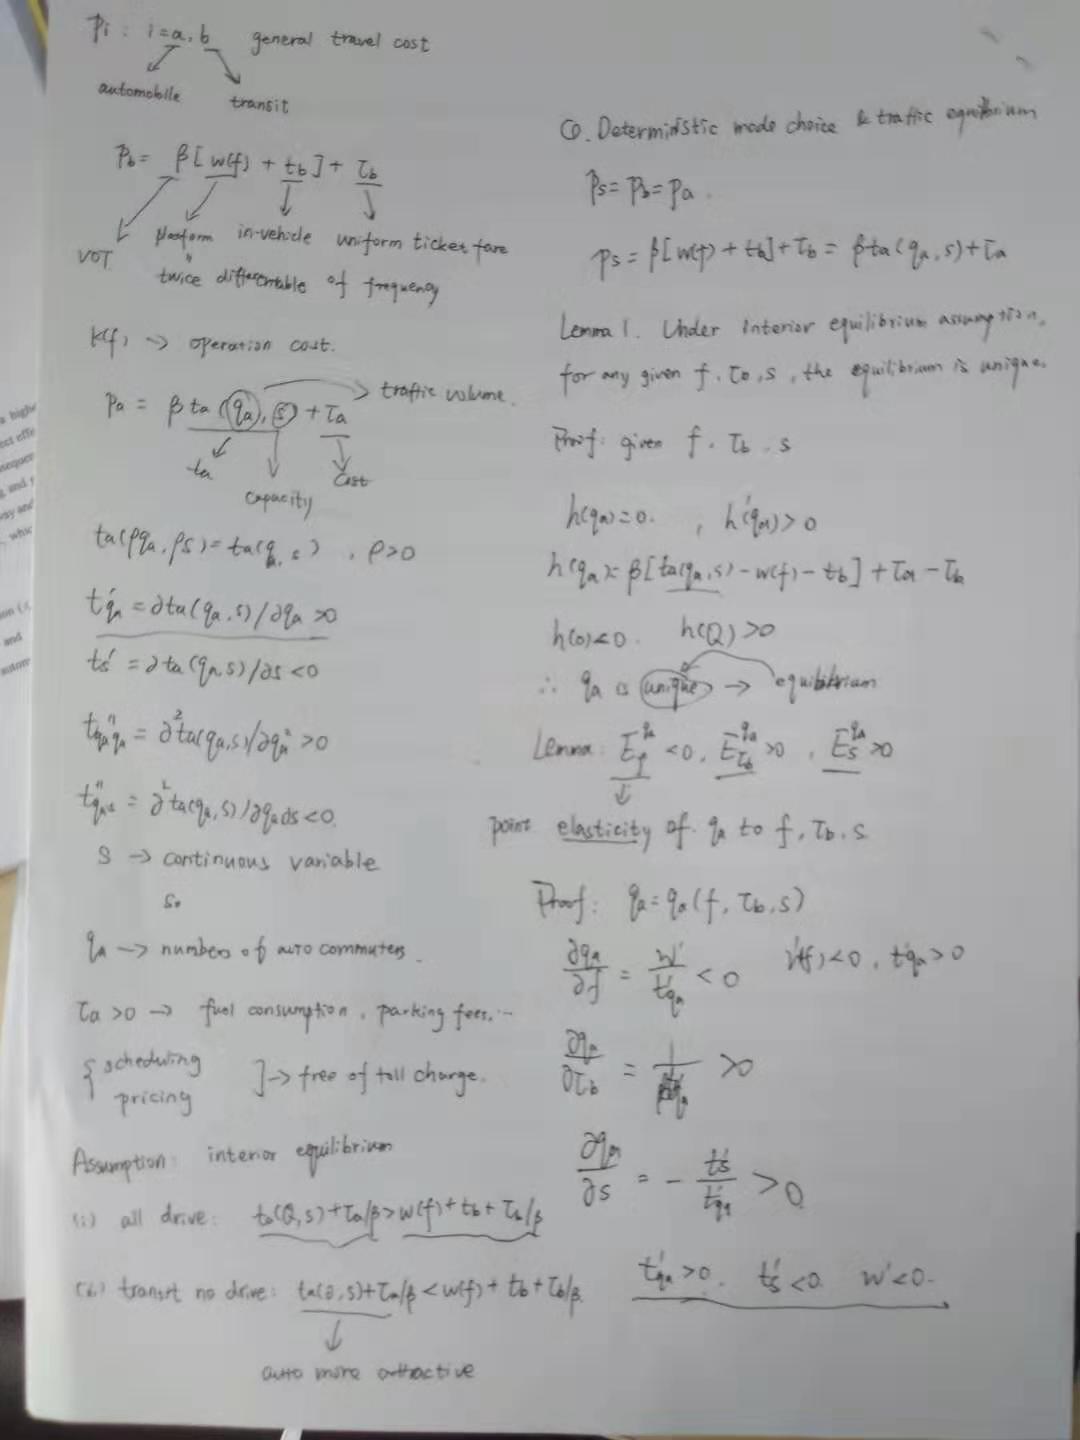 Pi : i=a,b general travel cost
automobile transit
Pb = β[w(f) + tb] + τb
VOT platform in-vehicle uniform ticket fare
twice differentable of frequency
K(f) → operation cost.
Pa = β ta (qa, s) + τa → traffic volume.
ta capacity cost
ta(ρqa, ρs) = ta(qa, s), ρ>0
t'qa = ∂ta(qa, s)/∂qa >0
ts' = ∂ta(qa,s)/∂s <0
t"qaqa = ∂²ta(qa,s)/∂qa² >0
t"qas = ∂²ta(qa,s)/∂qa∂s <0.
S → continuous variable
So
qa → numbers of auto commuters.
τa >0 → fuel consumption, parking fees, ...
{ scheduling
pricing ] → free of toll charge.
Assumption: interior equilibrium
(i) all drive: ta(Q,s)+τa/β > w(f)+tb+τb/β
transit no drive: ta(0,s)+τa/β < w(f)+tb+τb/β.
auto more attractive
Deterministic mode choice & traffic equilibrium
Ps = Pb = Pa.
Ps = β[w(f) + tb] + τb = βta(qa,s)+τa
Lemma 1. Under interior equilibrium assumption,
for any given f, τb, s, the equilibrium is unique.
Proof: given f, τb, s
h(qa)=0. , h'(qa)>0
h(qa)= β[ta(qa,s) - w(f) - tb] + τa - τb
h(0)<0. h(Q)>0
∴ qa is unique → equilibrium
Lemma: E_f^qa <0, E_τb^qa >0, E_s^qa >0
point elasticity of qa to f, τb, s
Proof: qa = qa(f, τb, s)
∂qa/∂f = w'/t'qa < 0 w'(f)<0, t'qa >0
∂qa/∂τb = 1/βt'qa >0
∂qa/∂s = - t's/t'qa >0
t'qa >0. t's <0. w'<0.